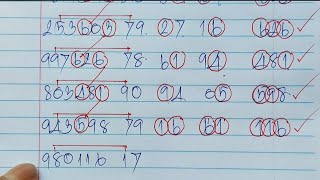 253603 79 27 16 646
997626 78 61 94 481
803481 90 94 05 598
943598 79 16 61 116
980116 17